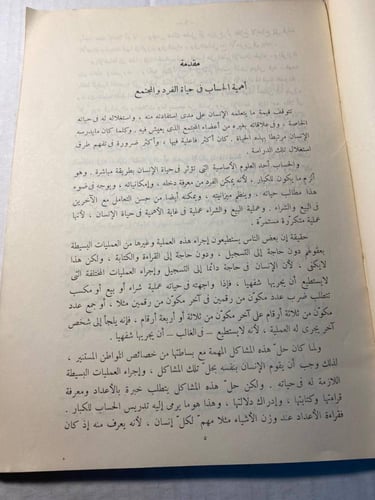 مقدمة
أهمية الحساب فى حياة الفرد والمجتمع
تتوقف قيمة ما يتعلمه الإنسان على مدى استفادته منه ، واستغلاله له فى حياته
الخاصة ، وفى علاقاته بغيره من أعضاء المجتمع الذى يعيش فيه . وكلما كان مايدرسه
الإنسان مرتبطا بهذه الحياة . كان أكثر فاعلية فيها ، وأكثر ضرورة فى تفهم طرق
استغلال تلك الدراسة .
والحساب أحد العلوم الأساسية التى تؤثر فى حياة الإنسان بطريقة مباشرة . وهو
ألزم ما يكون للكبار . لأنه يمكن الفرد من معرفة دخله ، وإمكانياته ، ويوجه فى ضوء
هذا مطالب حياته . وينظم ميزانيته ، ويمكنه أيضا من حسن التعامل مع الآخرين
فى البيع والشراء . وعملية البيع والشراء عملية فى غاية الأهمية فى حياة الإنسان ، لأنها
عملية متكررة مستمرة .
حقيقة إن بعض الناس يستطيعون إجراء هذه العملية وغيرها من العمليات البسيطة
بعقولهم دون حاجة إلى التسجيل ، ودون حاجة إلى القراءة والكتابة ، ولكن هذا
لايكفى ، لأن الإنسان فى حاجة دائما إلى التسجيل وإجراء العمليات المختلفة التى
لايستطيع أن يجريها شفهيا ، فإذا واجهته فى حياته عملية شراء أو بيع أو مكسب
تتطلب ضرب عدد مكون من رقمين فى آخر مكون من رقمين مثلا ، أو جمع عدد
مكون من ثلاثة أرقام على آخر مكون من ثلاثة أو أربعة أرقام ، فإنه يلجأ إلى شخص
آخر يجرى له العملية ، لأنه لايستطيع – فى الغالب – أن يجريها شفهيا .
ولما كان حل هذه المشاكل المهمة مع بساطتها من خصائص المواطن المستنير ،
لذلك وجب أن يقوم الإنسان بنفسه بحل تلك المشاكل ، وإجراء العمليات البسيطة
اللازمة له فى حياته . ولكن حل هذه المشاكل يتطلب خبرة بالأعداد ومعرفة
قراءتها وكتابتها ، وإدراك دلالتها ، وهذا هو ما يرمى إليه تدريس الحساب للكبار .
فقراءة الأعداد عند وزن الأشياء مثلا مهم لكل إنسان ، لأنه يعرف منه إذ كان